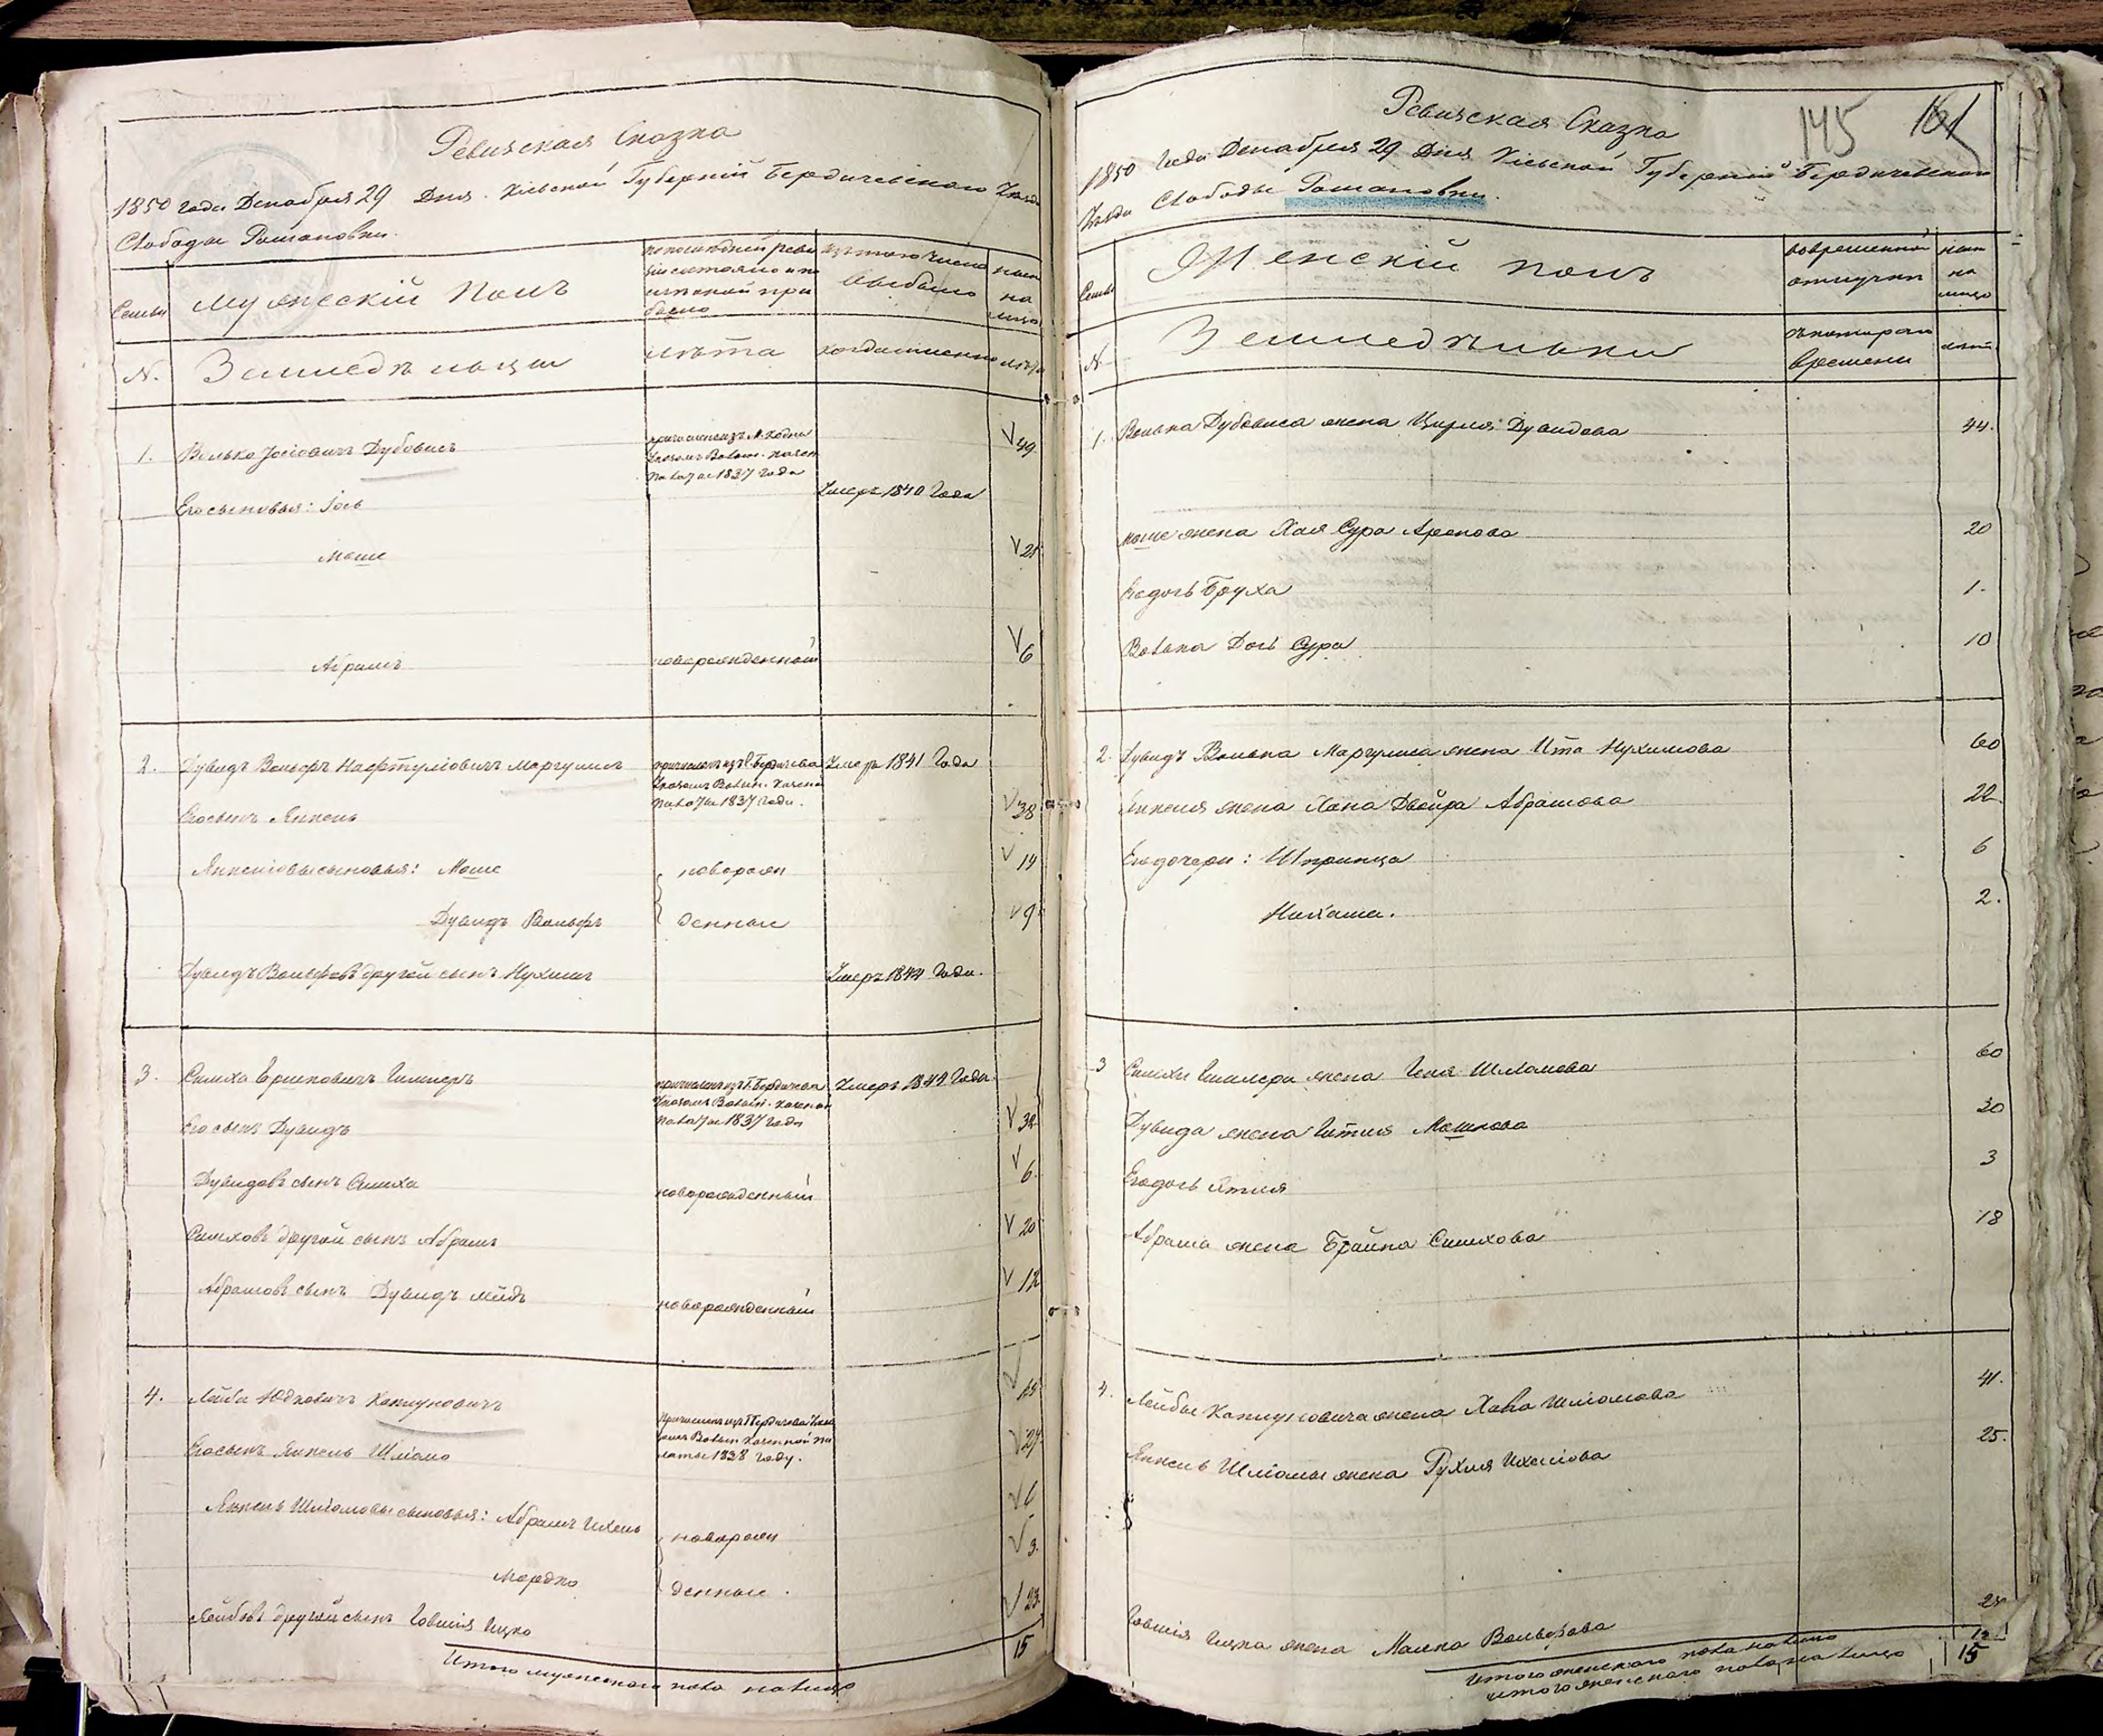 Ревизская Сказка
1850 года Декабря 29 Дня. Кіевской Губерній Бердичевского Уезда
Слободы Романовки.
Семьи
Мужескій Полъ
по последней реви
зіи состояло и по
оной при
было
изъ того числа
выбыло
ныне
на
лицо
N.
Земледельцы
лѣта
когда именно
лѣта
1. Волько Іосіовичъ Дубовисъ
причисленъ изъ М. Ходна
Указомъ Волын. казен
Палаты 1837 года
49
Его сыновья: Іось
Умеръ 1840 Года
Моше
21
Абрамъ
новорожденный
6
2. Дувидъ Вольфъ Нафтуліовичъ Маргулисъ
причисленъ изъ Г. Бердичева
Указомъ Волын. Казен
Палаты 1837 года.
Умеръ 1841 Года
Его сынъ Янкель
38
Янкеліовы сыновья: Моше
новорож
14
Дувидъ Вольфъ
денные
9
Дувидъ Вольфовъ другой сынъ Нухимъ
Умеръ 1844 Года.
3. Симха Ершковичъ Гимперъ
причисленъ изъ Г. Бердичева
Указомъ Волын. казен
Палаты 1837 года
Умеръ 1849 Года.
Его сынъ Дувидъ
32
Дувидовъ сынъ Симха
новорожденный
6.
Симховъ другой сынъ Абрамъ
20
Абрамовъ сынъ Дувидъ Лейбъ
новорожденный
12
4. Лейба Юдковичъ Капшуковичъ
Причисленъ изъ Г. Бердичева Ука
зомъ Волын. Казенной Па
латы 1838 году.
Его сынъ Янкель Шліомо
27
Янкель Шліомовы сыновья: Абрамъ Ихель
новорож
6
Мордко
денные.
3.
Лейбовъ другой сынъ Іовшія Ицко
23
Итого мужеского пола на лицо
15
145
Ревизская Сказка
1850 Года Декабря 29 Дня Кіевской Губерній Бердичевского
Уезда Слободы Романовки.
Семьи
Женскій полъ
во временной
отлучки
ныне
на
лицо
N
Земледельцы
съ котораго
времени
лѣта
1. Волька Дубовиса жена Цирля Дувидова
44.
Моше жена Хая Сура Аронова
20
Его дочь Бруха
1.
Волька Дочь Сура
10
2. Дувидъ Волька Маргулиса жена Ита Нухимова
60
Янкеля жена Хана Двойра Абрамова
22
Его дочери: Шпринца
6
Нихама.
2.
3 Симхи жена Геня Шліомова
60
Дувида жена Гитля Мошкова
30
Его дочь Этля
3
Абрама жена Брайна Симхова
18
4. Лейбы Капшуковича жена Хава Шліомова
41.
Янкель Шліомы жена Рухля Ихеліова
25.
Іовшія Ицка жена Малка Вольфова
Итого женскаго пола на лицо
итого женскаго пола на лицо
15